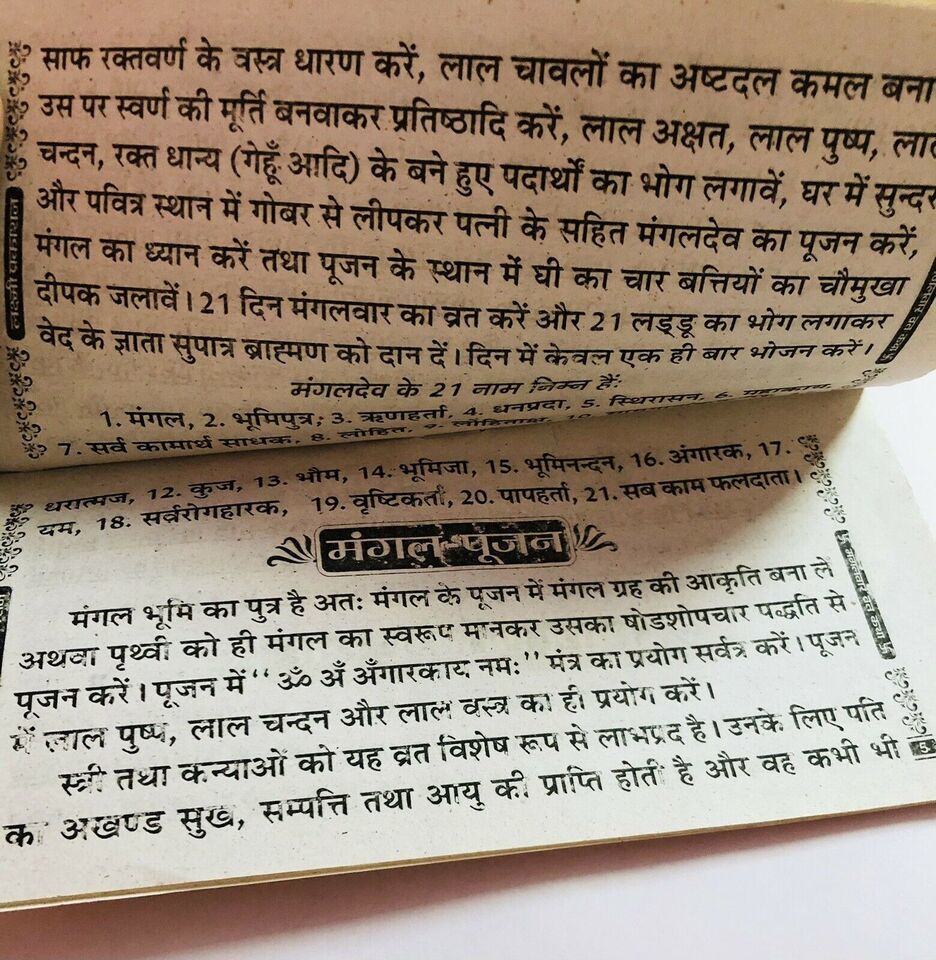 साफ रक्तवर्ण के वस्त्र धारण करें, लाल चावलों का अष्टदल कमल बना
उस पर स्वर्ण की मूर्ति बनवाकर प्रतिष्ठादि करें, लाल अक्षत, लाल पुष्प,
चन्दन, रक्त धान्य (गेहूँ आदि) के बने हुए पदार्थों का भोग लगावें, घर में
और पवित्र स्थान में गोबर से लीपकर पत्नी के सहित मंगलदेव का पूजन करें,
मंगल का ध्यान करें तथा पूजन के स्थान में घी का चार बत्तियों का चौमुखा
दीपक जलावें। 21 दिन मंगलवार का व्रत करें और 21 लड्डू का भोग लगाकर
वेद के ज्ञाता सुपात्र ब्राह्मण को दान दें। दिन में केवल एक ही बार भोजन करें।
मंगलदेव के 21 नाम निम्न हैं:
1. मंगल, 2. भूमिपुत्र; 3. ऋणहर्ता, 4. धनप्रदा, 5. स्थिरासन, 6.
7. सर्व कामार्थ साधक, 8. लोहित, 9.
धरात्मज, 12. कुज, 13. भौम, 14. भूमिजा, 15. भूमिनन्दन, 16. अंगारक, 17.
यम, 18. सर्वरोगहारक, 19. वृष्टिकर्ता, 20. पापहर्ता, 21. सब काम फलदाता।
मंगल-पूजन
मंगल भूमि का पुत्र है अतः मंगल के पूजन में मंगल ग्रह की आकृति बना लें
अथवा पृथ्वी को ही मंगल का स्वरूप मानकर उसका षोडशोपचार पद्धति से
पूजन करें। पूजन में "ॐ अँ अँगारकाय नमः" मंत्र का प्रयोग सर्वत्र करें। पूजन
में लाल पुष्प, लाल चन्दन और लाल वस्त्र का ही प्रयोग करें।
स्त्री तथा कन्याओं को यह व्रत विशेष रूप से लाभप्रद है। उनके लिए पति
का अखण्ड सुख, सम्पत्ति तथा आयु की प्राप्ति होती है और वह कभी भी
5